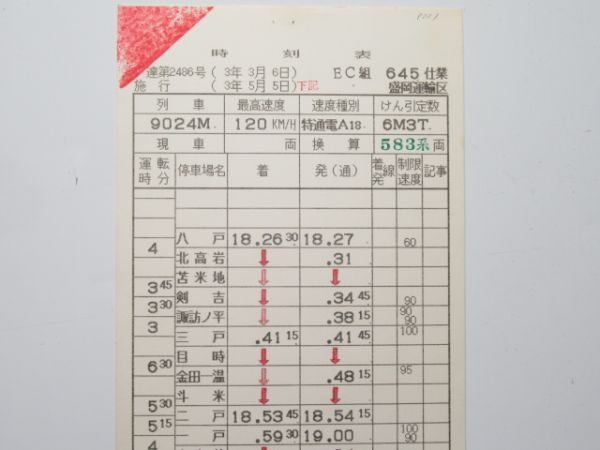 時刻表
達第2486号(3年3月6日) EC組 645仕業
施行(3年5月5日)下記 盛岡運輸区
列車 最高速度 速度種別 けん引定数
9024M. 120KM/H 特通電A18. 6M3T.
現車 両 換算 583系両
運転時分 停車場名 着 発(通) 着発線 制限速度 記事
八戸 18.26 30 18.27 60
4 北高岩 ↓ .31
苫米地 ↓ ↓
3 45 剣吉 ↓ .34 45 90
3 30 諏訪ノ平 ↓ .38 15 90 90
3 三戸 .41 15 .41 45 100
目時 ↓ ↓
6 30 金田一温 ↓ .48 15 95
斗米 ↓ ↓
5 30 二戸 18.53 45 18.54 15
5 15 一戸 .59 30 19.00 100 90
4